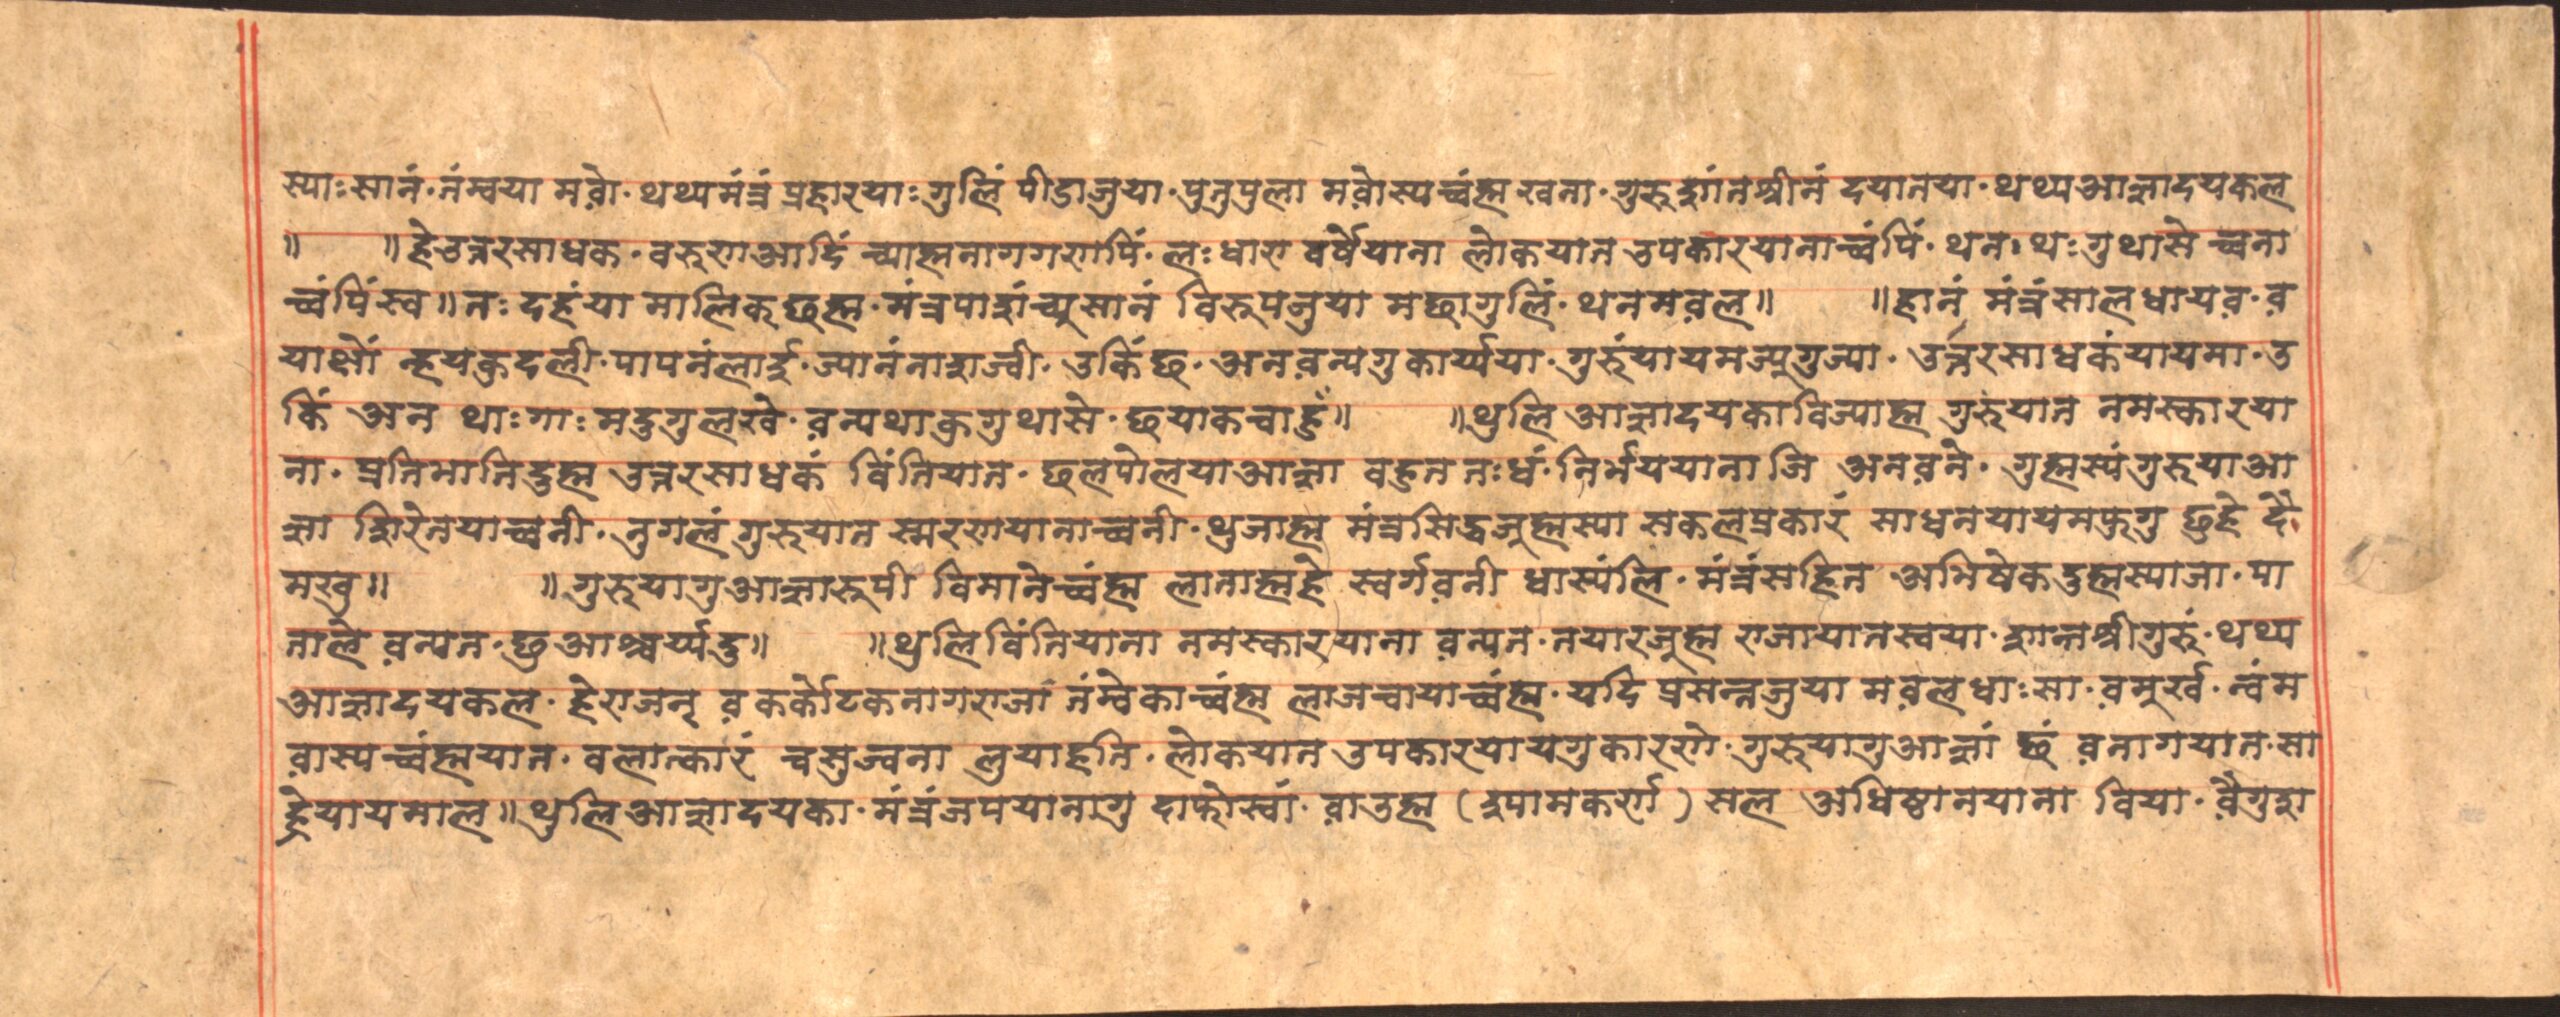 स्याःसानं·नंम्वया मवो·थथ्यमंत्रं प्रहारयाः गुलिं पीडाजुया·पुतुपुला मवोस्यच्वंह्म खना·गुरु शांतश्रीनं दयातया·थथ्यआज्ञादयकल
॥ ॥हेउत्तरसाधक·वरुणआदिं च्याह्मनागगरापिं·लःधारा वर्षेयाना लोकयात उपकारयानाच्वंपिं·थन·थःगुथासे च्वना
च्वंपिंख॥तःदहंया मालिक छह्म·मंत्रपाशं च्युसानं विरुपजुया मछागुलिं·थनमवल॥ ॥हानं मंत्रंसालधायव·व
याथों न्हयक्रुदली· पापनंलाई·ज्यानंनाशज्वी·उकिं छ·अनवन्यगुकार्य्यया·गुरुंयायमज्यूगुज्या·उर्त्तरसाधकंयायमा·उ
किं अन थाःगाः मदुगुलखे·वन्यथाक्रुगुथासे·छ्याकचाहुँ॥ ॥थुलि आज्ञादयकाविज्याह्म गुरुंयात नमस्कारया
ना·प्रतिमातिदुह्म उत्तरसाधकं विंतियात·छलपोलयाआज्ञा वहुत तःधं·निर्भययाना जि अनवने·गुह्मस्यंगुरुयाआ
ज्ञा शिरेतयाच्वनी·नुगलं गुरुयात स्मरणयानाच्वनी·थुजाह्म मंत्रसिद्धजूह्मस्या सकलप्रकारं साधनयायमफुगु छुहे दै
मखु॥ ॥गुरुयागुआज्ञारुपी विमानेच्वंह्म लानाह्महे स्वर्गवनी धास्यंलि·मंत्रंसहित अभिषेकदुह्मस्याजा·पा
ताले वन्यत·छुआश्चर्य्यदु॥ ॥थुलिविंतियाना नमस्कारयाना वन्यत·तयारजूह्म राजायातस्वया·शान्तश्रीगुरुं·थथ्य
आज्ञादयकल·हेराजन् व कर्कोटकनागराजा नंम्वेकाच्वंह्म लाजचायाच्वंह्म·यदि प्रसन्नजुया मवलधाःसा·वमूर्ख·न्वंम
वास्यच्वंह्मयात·वलात्कारं चसुज्वना लुयाहति·लोकयात उपकारयायगुकारणे·गुरुयागुआज्ञां छं वनागयात·सा
ह्रेयायमाल॥थुलिआज्ञादयका·मंत्रंजपयानागु दाफोस्वां·वाउह्म (शुपामकर्ण) सल अधिष्ठानयाना विया·वैगुशा